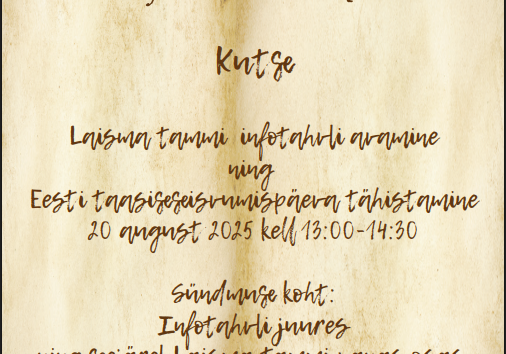 Kutse
Laisma tammi infotahvli avamine
ning
Eesti taasiseseisvumispäeva tähistamine
20 august 2025 kell 13:00-14:30
Sündmuse koht:
Infotahvli juures